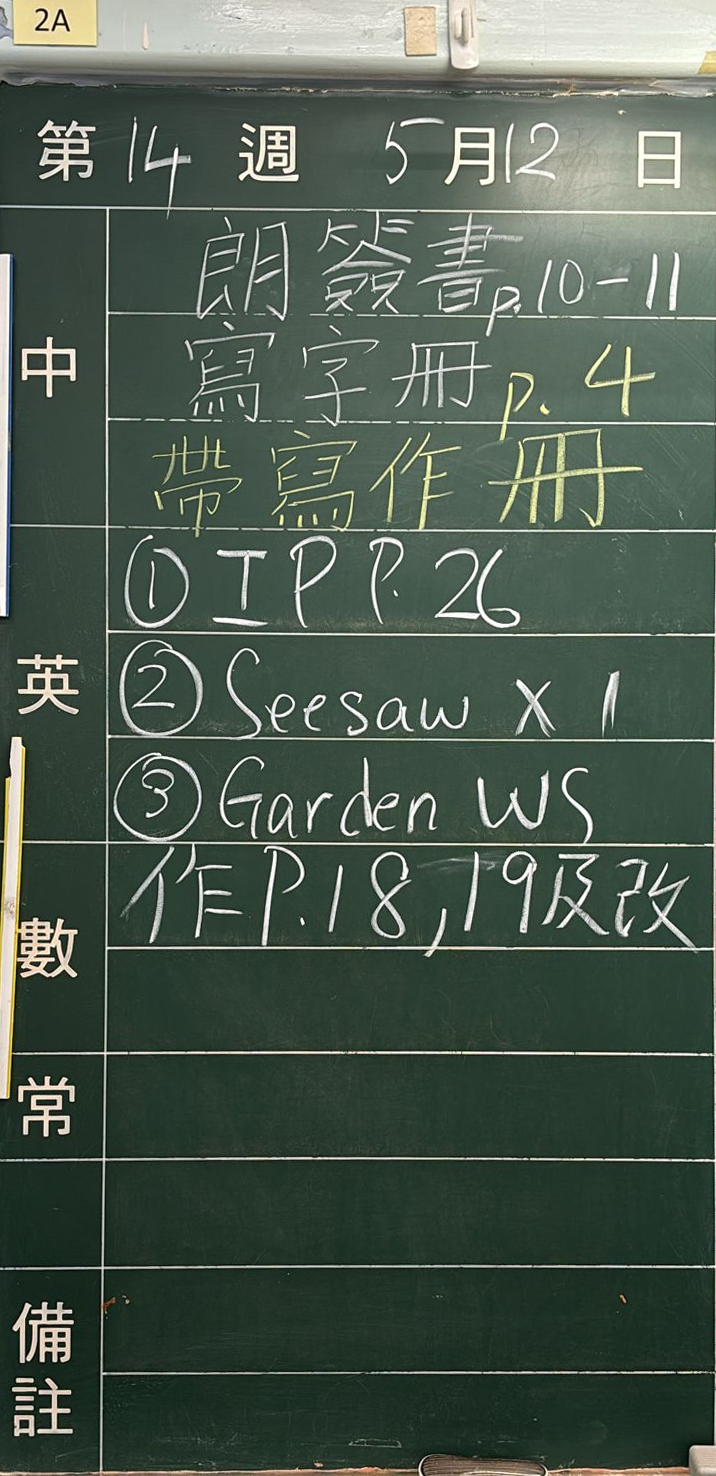 2A
第 14 週 5月12日
中
朗簽書 p.10-11
寫字冊 p.4
帶寫作冊
英
① IP P.26
② Seesaw x 1
③ Garden WS
數
作 P.18,19及改
常
備註